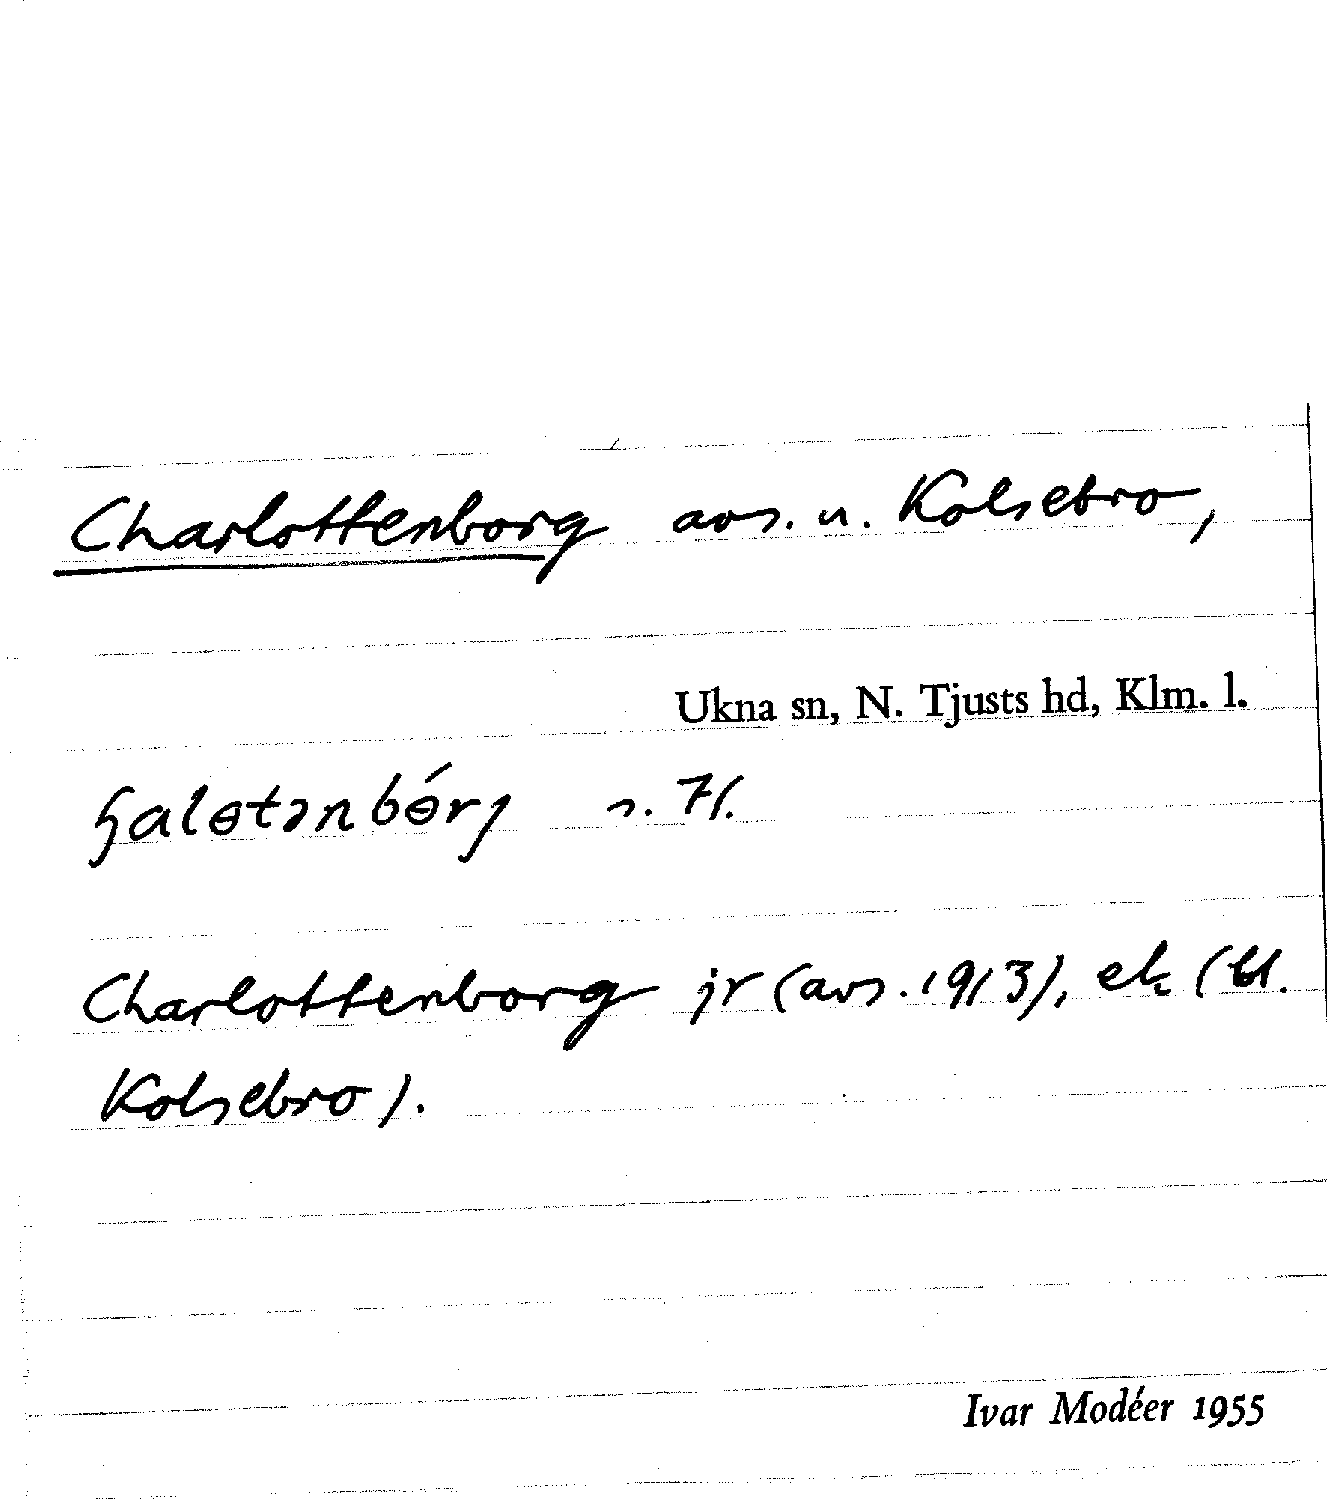 Charlottenborg avs. u. Kolsebro,
Ukna sn, N. Tjusts hd, Klm. l.
ɧaləɵtənbɵ́rj s. 71.
Charlottenborg jr (avs. 1913), ek (bl.
Kolsebro).
Ivar Modéer 1955